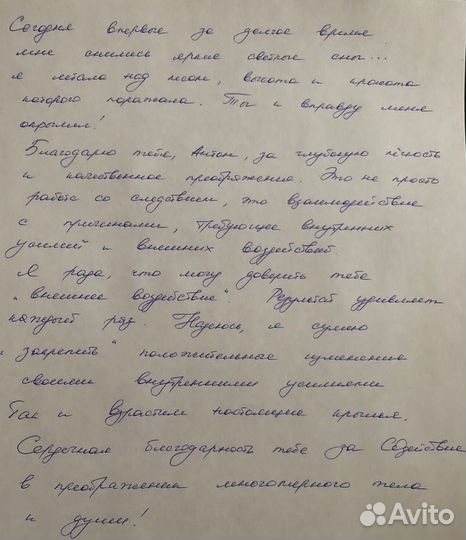 Сегодня впервые за долгое время
мне снились яркие светлые сны...
я летала над лесом, высота и красота
которого поражала. Ты и вправду меня
окрылил!
Благодарю тебя, Антон, за глубокую
и качественное преображение. Это не просто
работа со следствием, это взаимодействие
с причинами, требующее внутренних
усилий и внешних воздействий.
Я рада, что могу доверить тебе
"внешнее воздействие". Результат удивляет
каждый раз. Надеюсь, я сумею
"закрепить" положительные изменения
своими внутренними усилиями
Так и взрастим настоящие крылья.
Сердечная благодарность тебе за Содействие
в преображении многомерного тела
и души!
Avito